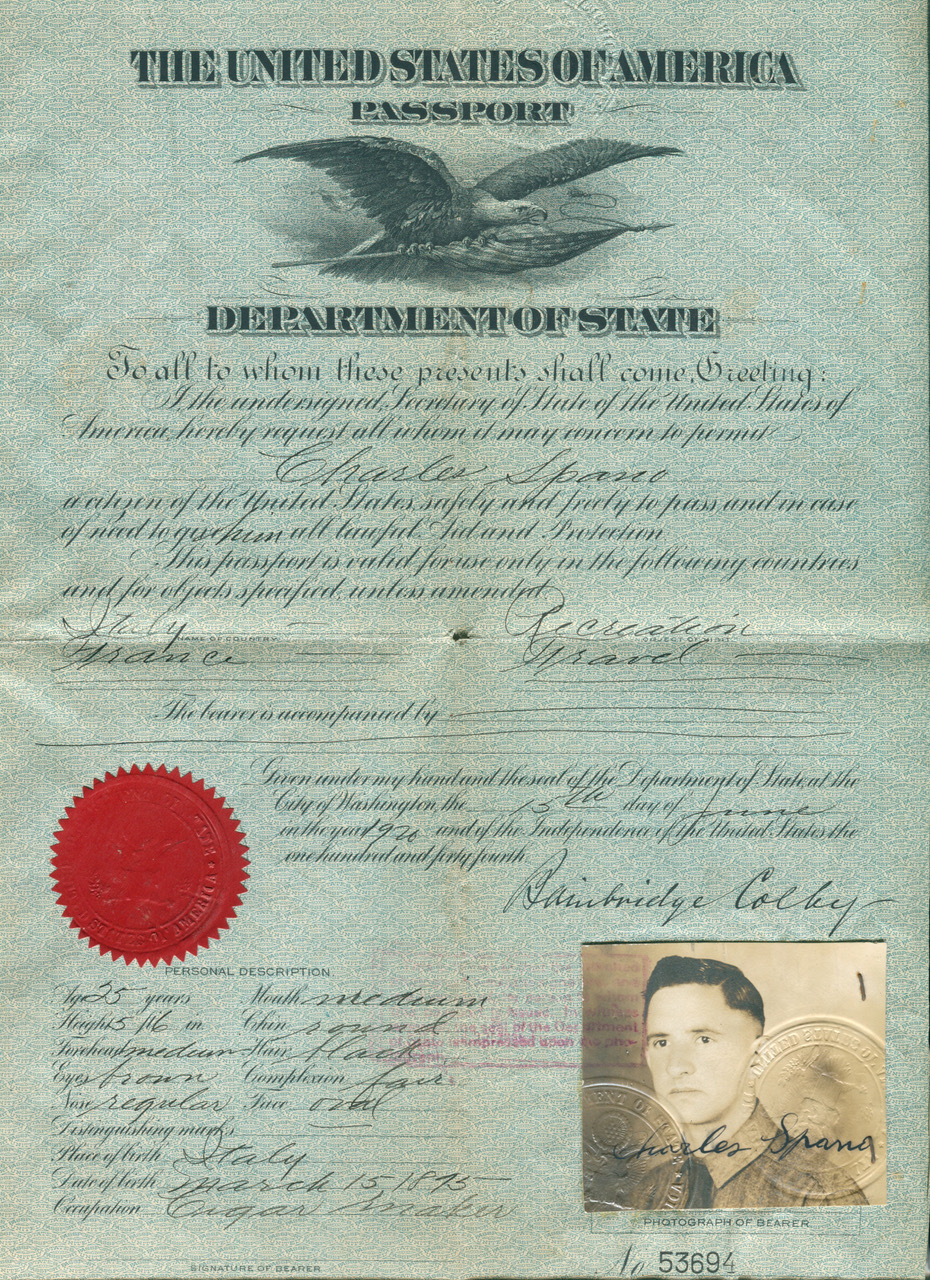 THE UNITED STATES OF AMERICA
PASSPORT
DEPARTMENT OF STATE
To all to whom these presents shall come, Greeting:
I, the undersigned, Secretary of State of the United States of
America, hereby request all whom it may concern to permit
Charles Spano
a citizen of the United States, safely and freely to pass and in case
of need to give him all lawful Aid and Protection.
This passport is valid for use only in the following countries
and for objects specified, unless amended.
Italy Recreation
NAME OF COUNTRY. OBJECT OF VISIT.
France Travel
The bearer is accompanied by
Given under my hand and the seal of the Department of State, at the
City of Washington, the 15th day of June
in the year 1920 and of the Independence of the United States the
one hundred and forty fourth.
Bainbridge Colby
PERSONAL DESCRIPTION
Age 35 years Mouth medium
Height 5' 16 in Chin round
Forehead medium Hair black
Eyes brown Complexion fair
Nose regular Face oval
Distinguishing marks
Place of birth Italy
Date of birth March 15 1895
Occupation Cigar Maker
SIGNATURE OF BEARER
seal of the Department
impressed upon
Charles Spano
PHOTOGRAPH OF BEARER
No 53694